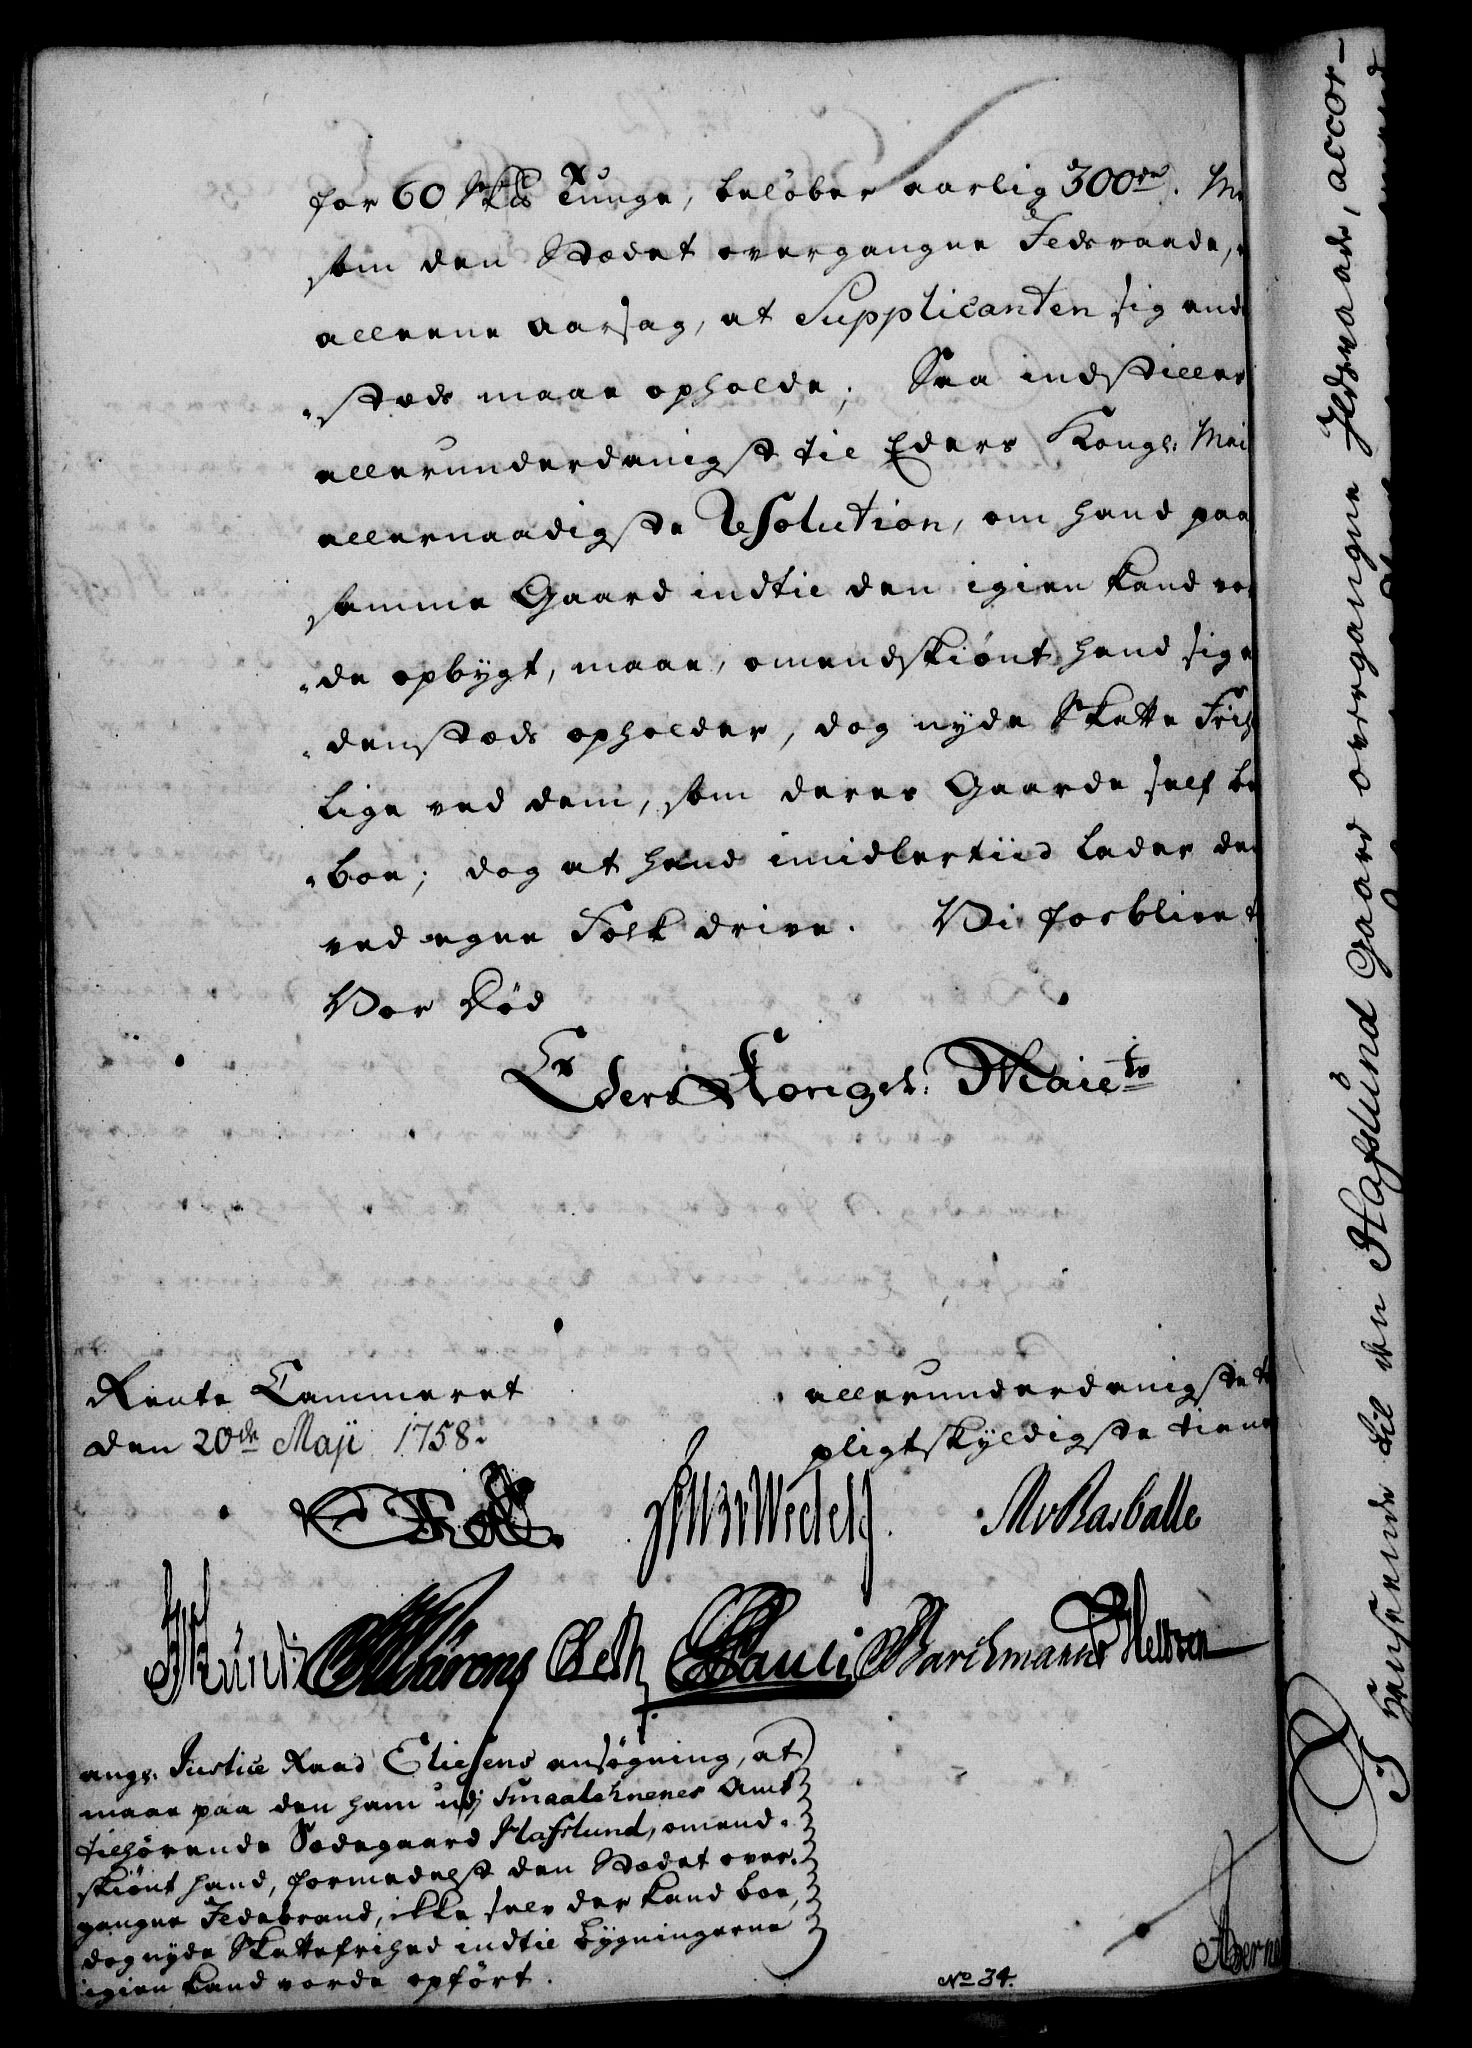 for 60 Skls Tunge, beløber aarlig 300rd. Me
som den Stædet overgangne Ildsvaade,
alleene aarsag, at Supplicanten sig and
stæds maae opholde; Saa indstilles
allerunderdanigst til Eders Kongl: Mai
allernaadigste Resolution, om hand paa
samme Gaard indtil den igien kand vor
de opbygt, maae, omendskiønt hand sig
denstæds opholder, dog nyde Skatte Frih
lige ved dem, som deres Gaarde self be
boe; dog at hand imidlertiid lader den
ved egne Folk drive. Vi forblive
Vor Død
Eders Kongel: Maiets
Rente Cammeret
den 20de Maji 1758.
allerunderdanigste
pligtskyldigste tiene
Wedell
MvRasballe
Pauli Barchmann Heltzen
angl. Justice Raad Eliesens ansøgning, at
maae paa den ham udj Smaalehnenes Amt
tilhørende Sædegaard Hafslund, omend-
skiønt hand, formedelst den Stædet over-
gangne Ildebrand, ikke selv der kand boe,
dog nyde Skattefrihed indtil bygningerne
igien kand vorde opført.
No 34.
til den Hafslund Gaard overgangne Ildsvaade, accor-